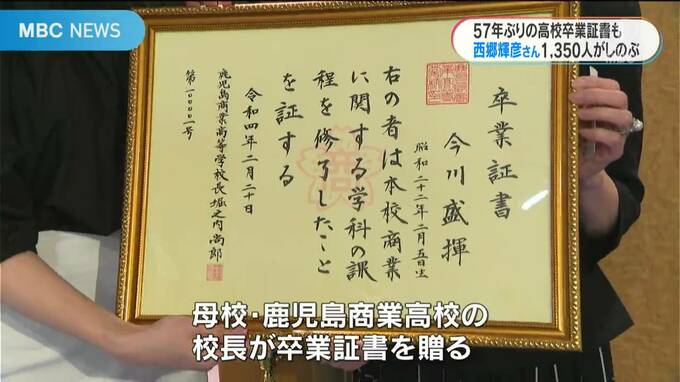 MBC NEWS
57年ぶりの高校卒業証書も
西郷輝彦さん1,350人がしのぶ
卒業証書
今川盛揮
昭和二十二年二月五日生
右の者は本校商業
に関する学科の課
程を修了したこと
を証する
令和四年二月二十日
鹿児島商業高等学校長堀之内尚郎
第一〇〇〇一号
母校・鹿児島商業高校の
校長が卒業証書を贈る